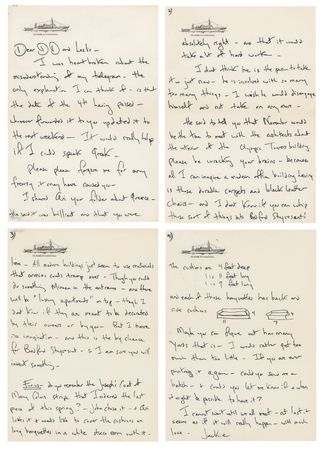 Dear D D and Leslie -
I was heart broken about the
misunderstanding of my telegram - the
only explanation I can think of - is that
the date of the 4th having passed -
whoever forwarded it to you updated it to
the next weekend - It would really help
if I could speak Greek -
please please forgive me for any
frenzy it may have caused you -
I showed Ari your folder about Greece -
he said it was brilliant and that you were
2)
absolutely right - and that it would
take a lot of hard work -
I dont think he is the person to take
it on just now - he is involved with so many
too many things - I wish he would disengage
himself and not take on any more -
He said to tell you that November would
be the time to meet with the architects about
the interior of the Olympic Towers building
please be wracking your brains - because
all I can imagine in a modern office building having
is those durable carpets and black leather
chairs - and I don't know if you can whip
those sort of things into
3)
love - All modern buildings just seem to use materials
that armies could stamp over - Though you could
do something in the entrance - and there
will be "living apartments" on top - though I
don't know if they are meant to be decorated
by their owners or by you - But I have
no imagination - and this is the big chance
for - I am sure you will
invent something -
- do you remember the Joseph's Coat of
Many Colors stripe that I ordered the last
piece of this spring? - John chose it - & Ari
loves it & wants like to cover the cushions on
long banquettes in a white dress room with it -
4)
The cushions are 4 feet deep
1 is 11 feet long
1 is 9 feet long
and each of these banquettes has back and
side cushions
Maybe you can figure out how many
yards that is - I would rather get too
much than too little - If you are ever
printing it again - could you save me a
batch - & could you let me know if & when
it might be possible to have it?
I cannot wait until we all meet - at last it
seems as if it will really happen - with much
love - Jackie